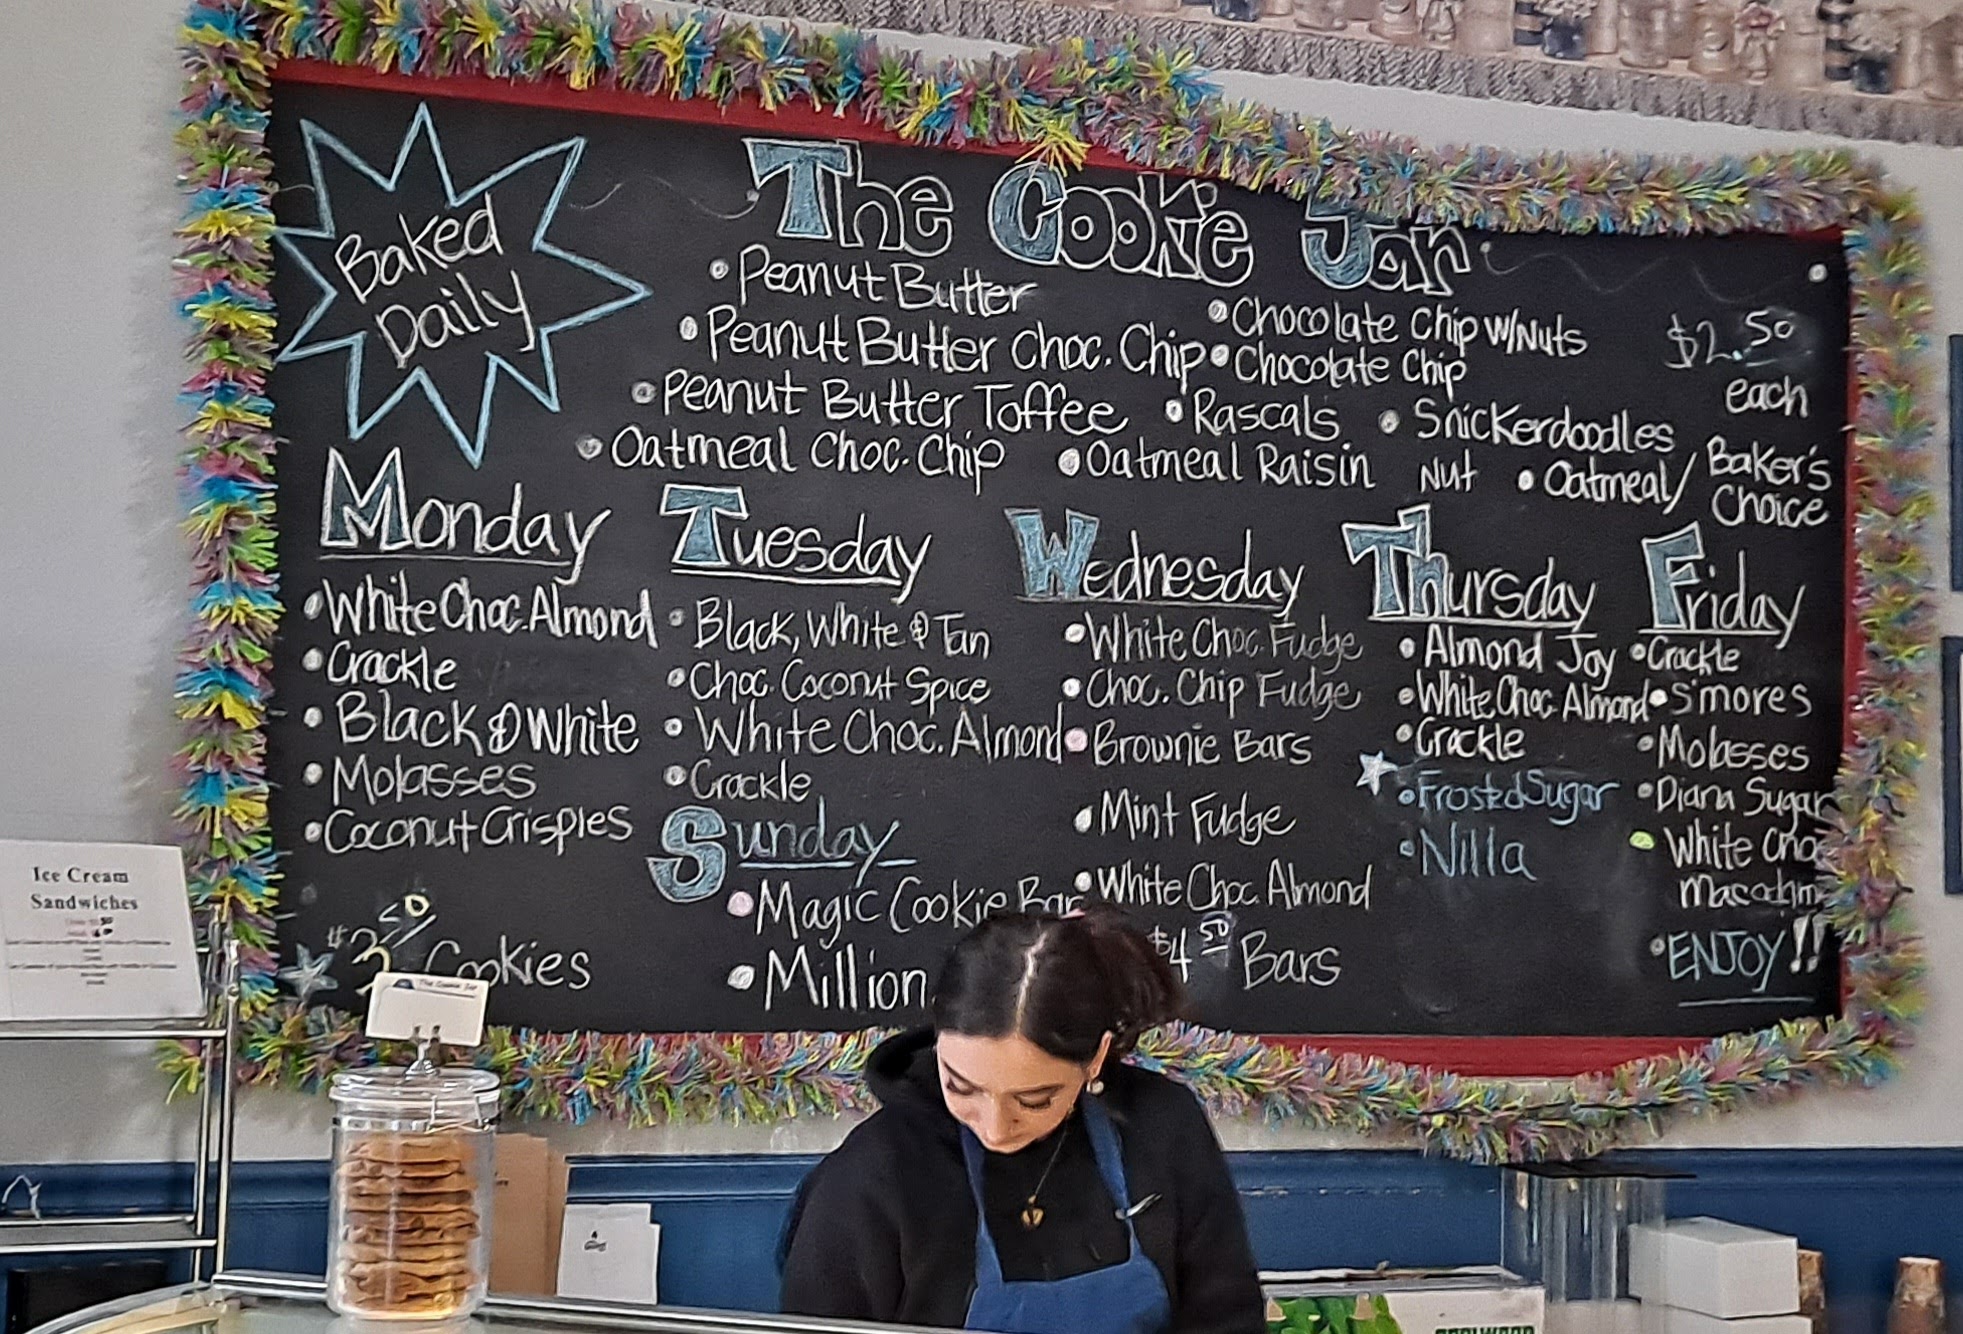 The Cookie Jar
Baked
Daily
• Peanut Butter
• Chocolate Chip w/Nuts
• Peanut Butter Choc. Chip
• Chocolate Chip
$2.50
each
• Peanut Butter Toffee
• Rascals
• Snickerdoodles
• Oatmeal Choc. Chip
• Oatmeal Raisin
Nut
• Oatmeal/
Baker's
Choice
Monday
• White Choc. Almond
• Crackle
• Black & White
• Molasses
• Coconut Crispies
$3.50 Cookies
Tuesday
• Black, White & Tan
• Choc. Coconut Spice
• White Choc. Almond
• Crackle
Sunday
• Magic Cookie Bar
• Million
Wednesday
• White Choc. Fudge
• Choc. Chip Fudge
• Brownie Bars
• Mint Fudge
• White Choc. Almond
$4.50 Bars
Thursday
• Almond Joy
• White Choc. Almond
• Crackle
• Frosted Sugar
• Nilla
Friday
• Crackle
• S'mores
• Molasses
• Diana Sugar
• White Choc
Macadam
• ENJOY!!
Ice Cream
Sandwiches
The Cookie Jar